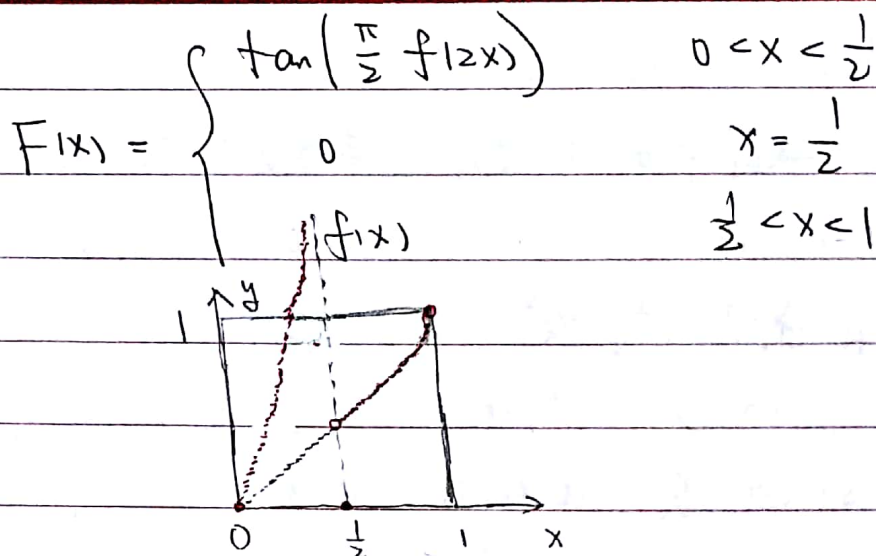 F(x) = { tan(π/2 f(2x)) 0 < x < 1/2
0 x = 1/2
f(x) 1/2 < x < 1
y
1
0 1/2 1 x